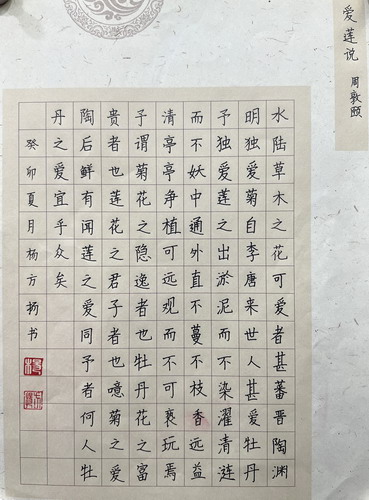 爱莲说
周敦颐
水陆草木之花可爱者甚蕃晋陶渊
明独爱菊自李唐来世人甚爱牡丹
予独爱莲之出淤泥而不染濯清涟
而不妖中通外直不蔓不枝香远益
清亭亭净植可远观而不可亵玩焉
予谓菊花之隐逸者也牡丹花之富
贵者也莲花之君子者也噫菊之爱
陶后鲜有闻莲之爱同予者何人牡
丹之爱宜乎众矣
癸卯夏月杨方扬书